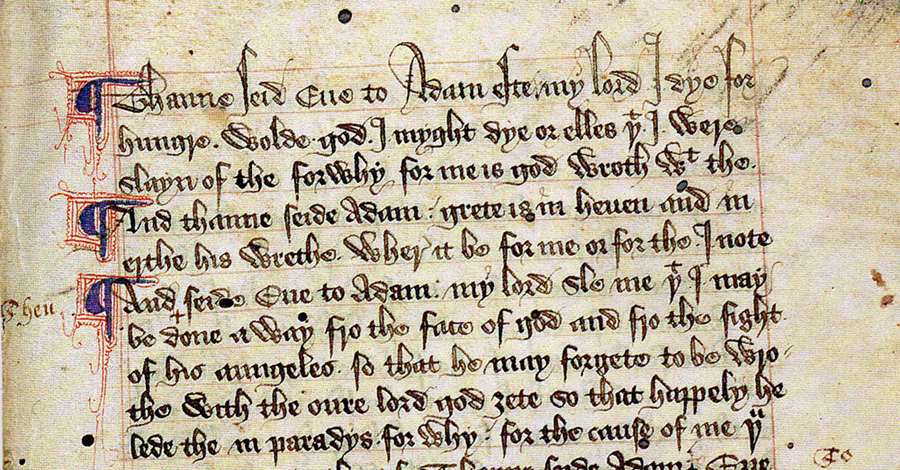 Thanne seid Eue to Adam efte my lord I dye for
hungre. wolde god. I myght dye or elles þt I. were
slayn of the forwhy for me is god wroth wt the.
And thanne seide Adam. grete is in heuen and in
erthe his wrethe. wher it be for me or for the I note
And seide Eue to Adam. my lord sle me þt I may
then
be done a way fro the face of god and fro the sight
of his aungeles. so that he may forgete to be wro-
the with the oure lord god zete so that happely he
lede the in paradys. for why. for the cause of me þu
Thanne seide Adam Eue